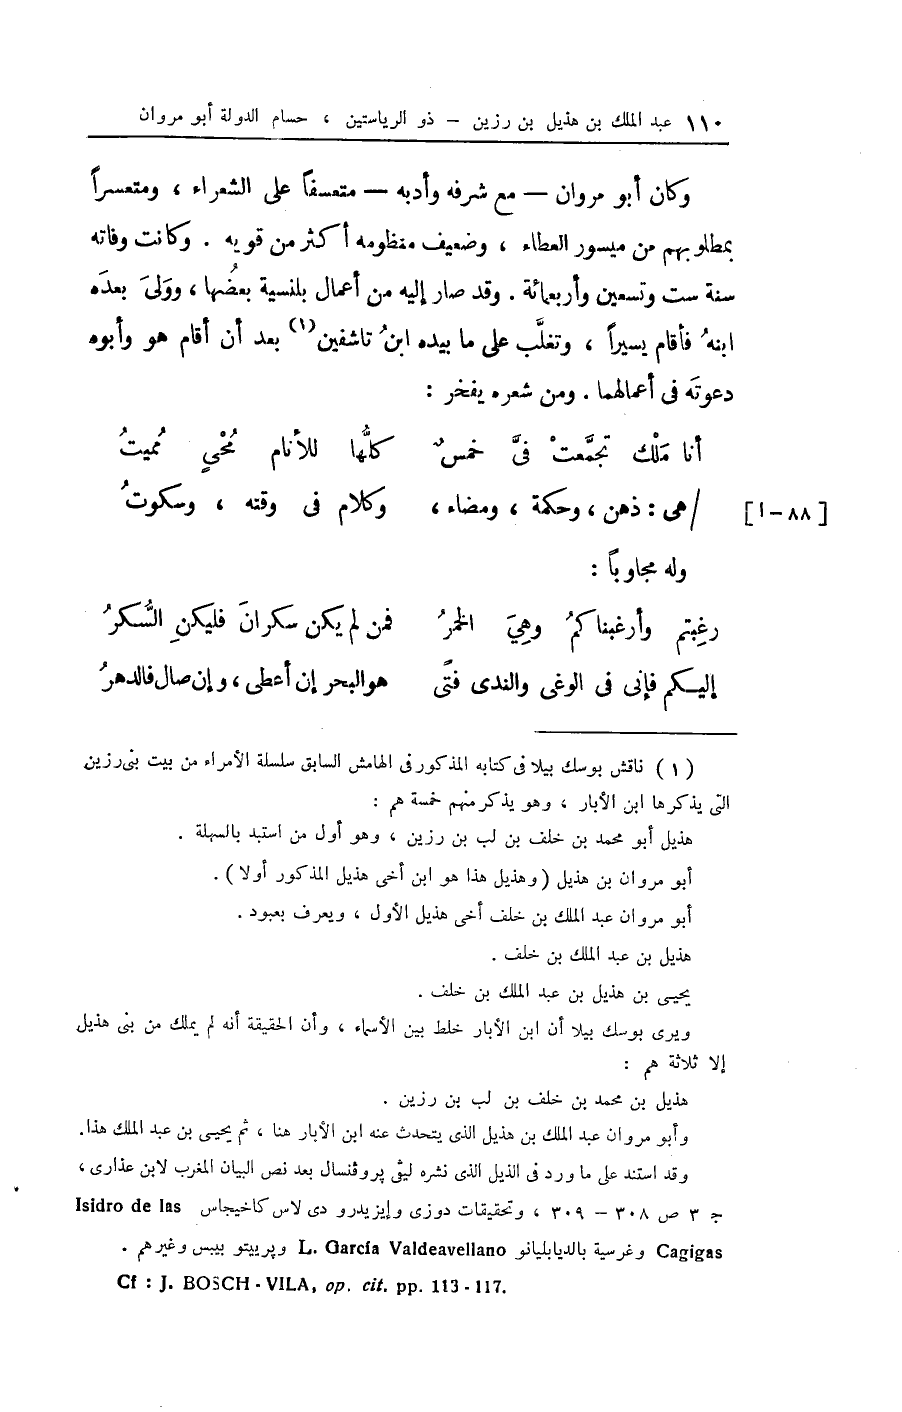 ١١٠ عبد الملك بن هذيل بن رزين – ذو الرياستين ، حسام الدولة أبو مروان
وكان أبو مروان – مع شرفه وأدبه – متعسفاً على الشعراء ، ومتعسراً
بمطلوبهم من ميسور العطاء ، وضعيف منظومه أكثر من قويه . وكانت وفاته
سنة ست وتسعين وأربعمائة . وقد صار إليه من أعمال بلنسية بعضُها ، ووَلىَ بعدَه
ابنهُ فأقام يسيراً ، وتغلَّب على ما بيده ابنُ تاشفين(١) بعد أن أقام هو وأبوه
دعوتَه فى أعمالهما . ومن شعره يفخر :
أنا مَلْك تجمَّعتْ فىَّ خمسٌ كلُّها للأنام مُحْىٍ مُميتُ
[ ٨٨ – ا ] / هى : ذهن ، وحكمة ، ومضاء ، وكلام فى وقته ، وسكوتُ
وله مجاوباً :
رغِبتم وأرغبناكمُ وهِىَ الخمرُ فمن لم يكن سكرانَ فليكنِ السُّكرُ
إليكم فإنى فى الوغى والندى فتًى هو البحر إن أعطى ، وإن صال فالدهرُ
( ١ ) ناقش بوسك بيلا فى كتابه المذكور فى الهامش السابق سلسلة الأمراء من بيت بنى رزين
التى يذكرها ابن الأبار ، وهو يذكر منهم خمسة هم :
هذيل أبو محمد بن خلف بن لب بن رزين ، وهو أول من استبد بالسهلة .
أبو مروان بن هذيل ( وهذيل هذا هو ابن أخى هذيل المذكور أولا ) .
أبو مروان عبد الملك بن خلف أخى هذيل الأول ، ويعرف بعبود .
هذيل بن عبد الملك بن خلف .
يحيى بن هذيل بن عبد الملك بن خلف .
ويرى بوسك بيلا أن ابن الأبار خلط بين الأسماء ، وأن الحقيقة أنه لم يملك من بنى هذيل
إلا ثلاثة هم :
هذيل بن محمد بن خلف بن لب بن رزين .
وأبو مروان عبد الملك بن هذيل الذى يتحدث عنه ابن الأبار هنا ، ثم يحيى بن عبد الملك هذا.
وقد استند على ما ورد فى الذيل الذى نشره ليفى پروڤنسال بعد نص البيان المغرب لابن عذارى ،
ج ٣ ص ٣٠٨ – ٣٠٩ ، وتحقيقات دوزى وإيزيدرو دى لاس كاخيجاس Isidro de las
Cagigas وغرسية بالديابليانو L. García Valdeavellano وپرييتو بيبس وغيرهم .
Cf : J. BOSCH - VILA, op. cit. pp. 113 - 117.